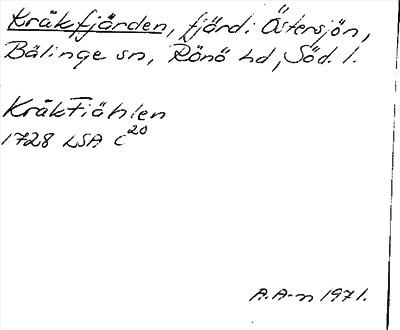 Kråkfjärden, fjärd i Östersjön,
Bälinge sn, Rönö hd, Söd. l.
KråkFiählen
1728 LSA C20
A.A-n 1971.